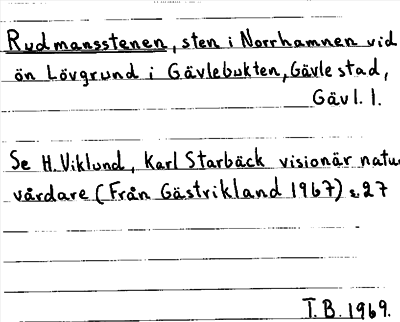 Rudmansstenen, sten i Norrhamnen vid
ön Lövgrund i Gävlebukten, Gävle stad,
Gävl. l.
Se H. Viklund, Karl Starbäck visionär natu
vårdare (Från Gästrikland 1967) s. 27
T. B. 1969.